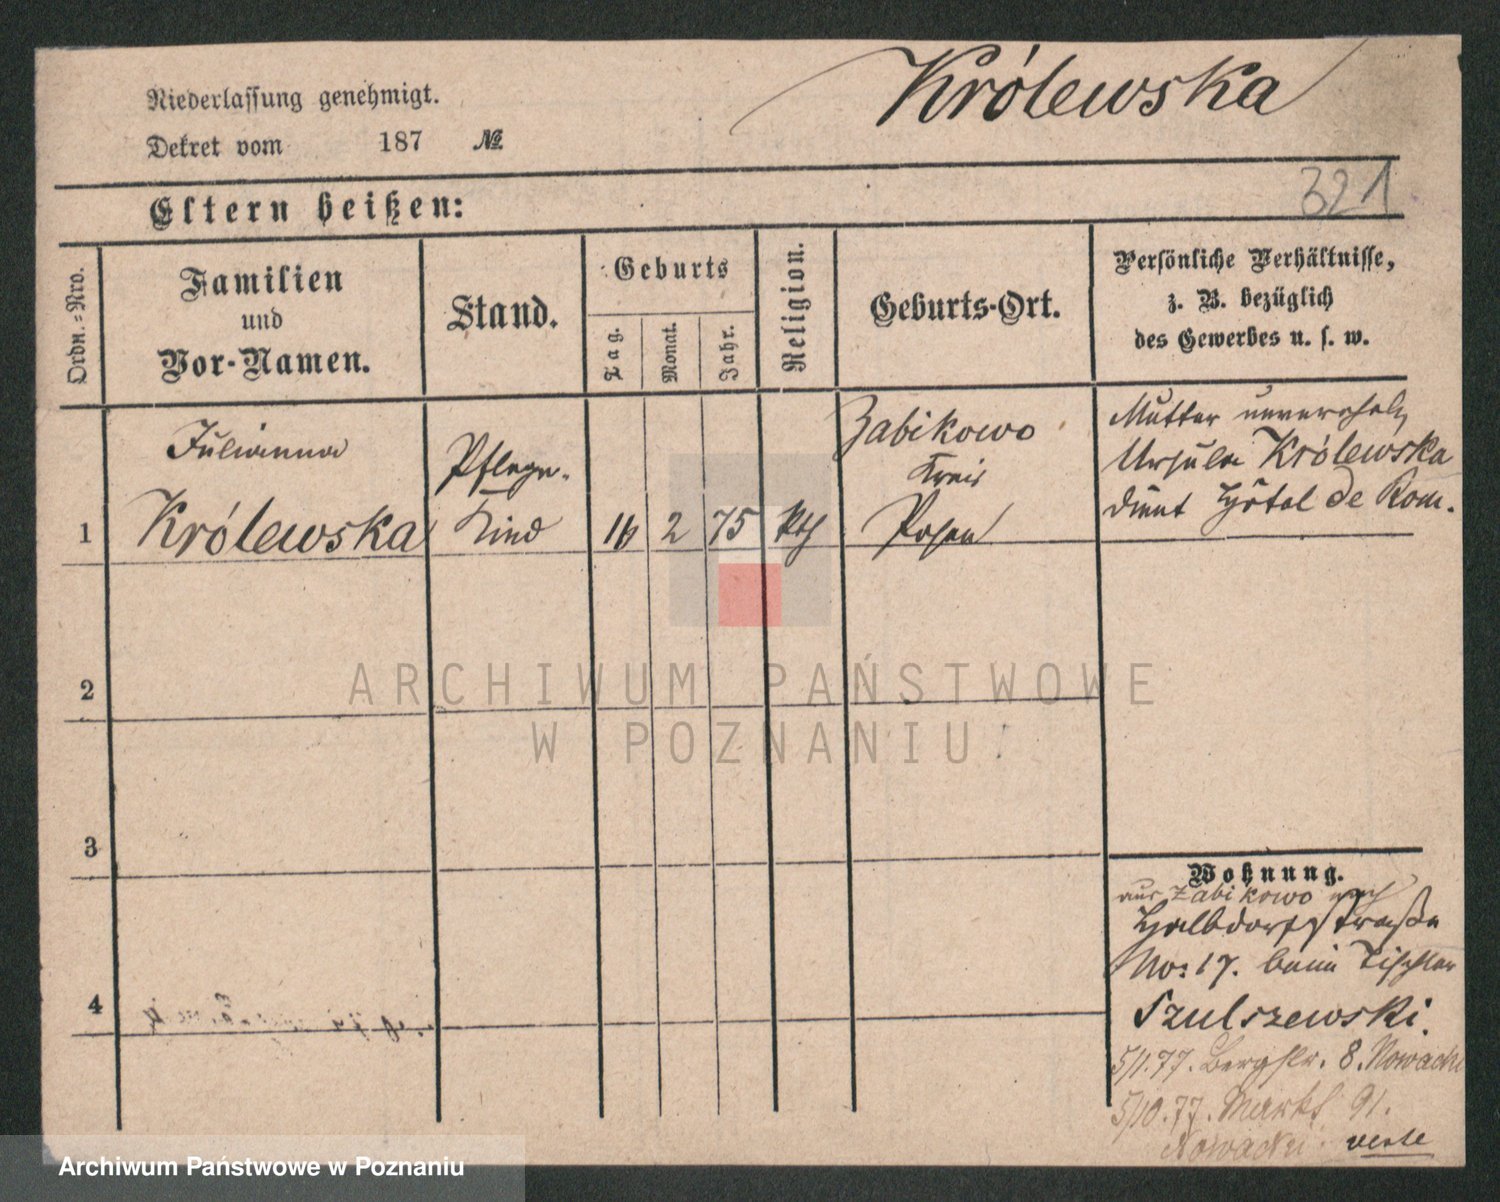 Królewska
Niederlassung genehmigt.
Dekret vom 187 №
321
Eltern heißen:
Ordn.=Nro.
Familien
und
Vor-Namen.
Stand.
Geburts
Tag.
Monat.
Jahr.
Religion.
Geburts-Ort.
Persönliche Verhältnisse,
z. B. bezüglich
des Gewerbes u. s. w.
1
Julianna
Królewska
Pflege-
Kind
16
2
75
kth
Zabikowo
Kreis
Posen
Mutter unverehel.
Ursula Królewska
dient Hôtel de Rom.
2
3
4
ARCHIWUM PAŃSTWOWE
W POZNANIU
Wohnung.
aus Zabikowo nach
Halbdorfstraße
No: 17. beim Tischler
Szulszewski.
5/1.77. Bergstr. 8. Nowacki
5/10.77. Markt 91.
Nowacki. verte
Archiwum Państwowe w Poznaniu